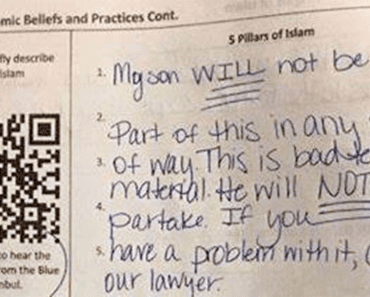 mic Beliefs and Practices Cont.
fly describe
Islam
5 Pillars of Islam
1. My son WILL not be
2. Part of this in any
3. of way. This is bad te
material. He will NOT
4. partake. If you
5. have a problem with it,
our lawyer.
o hear the
om the Blue
nbul.